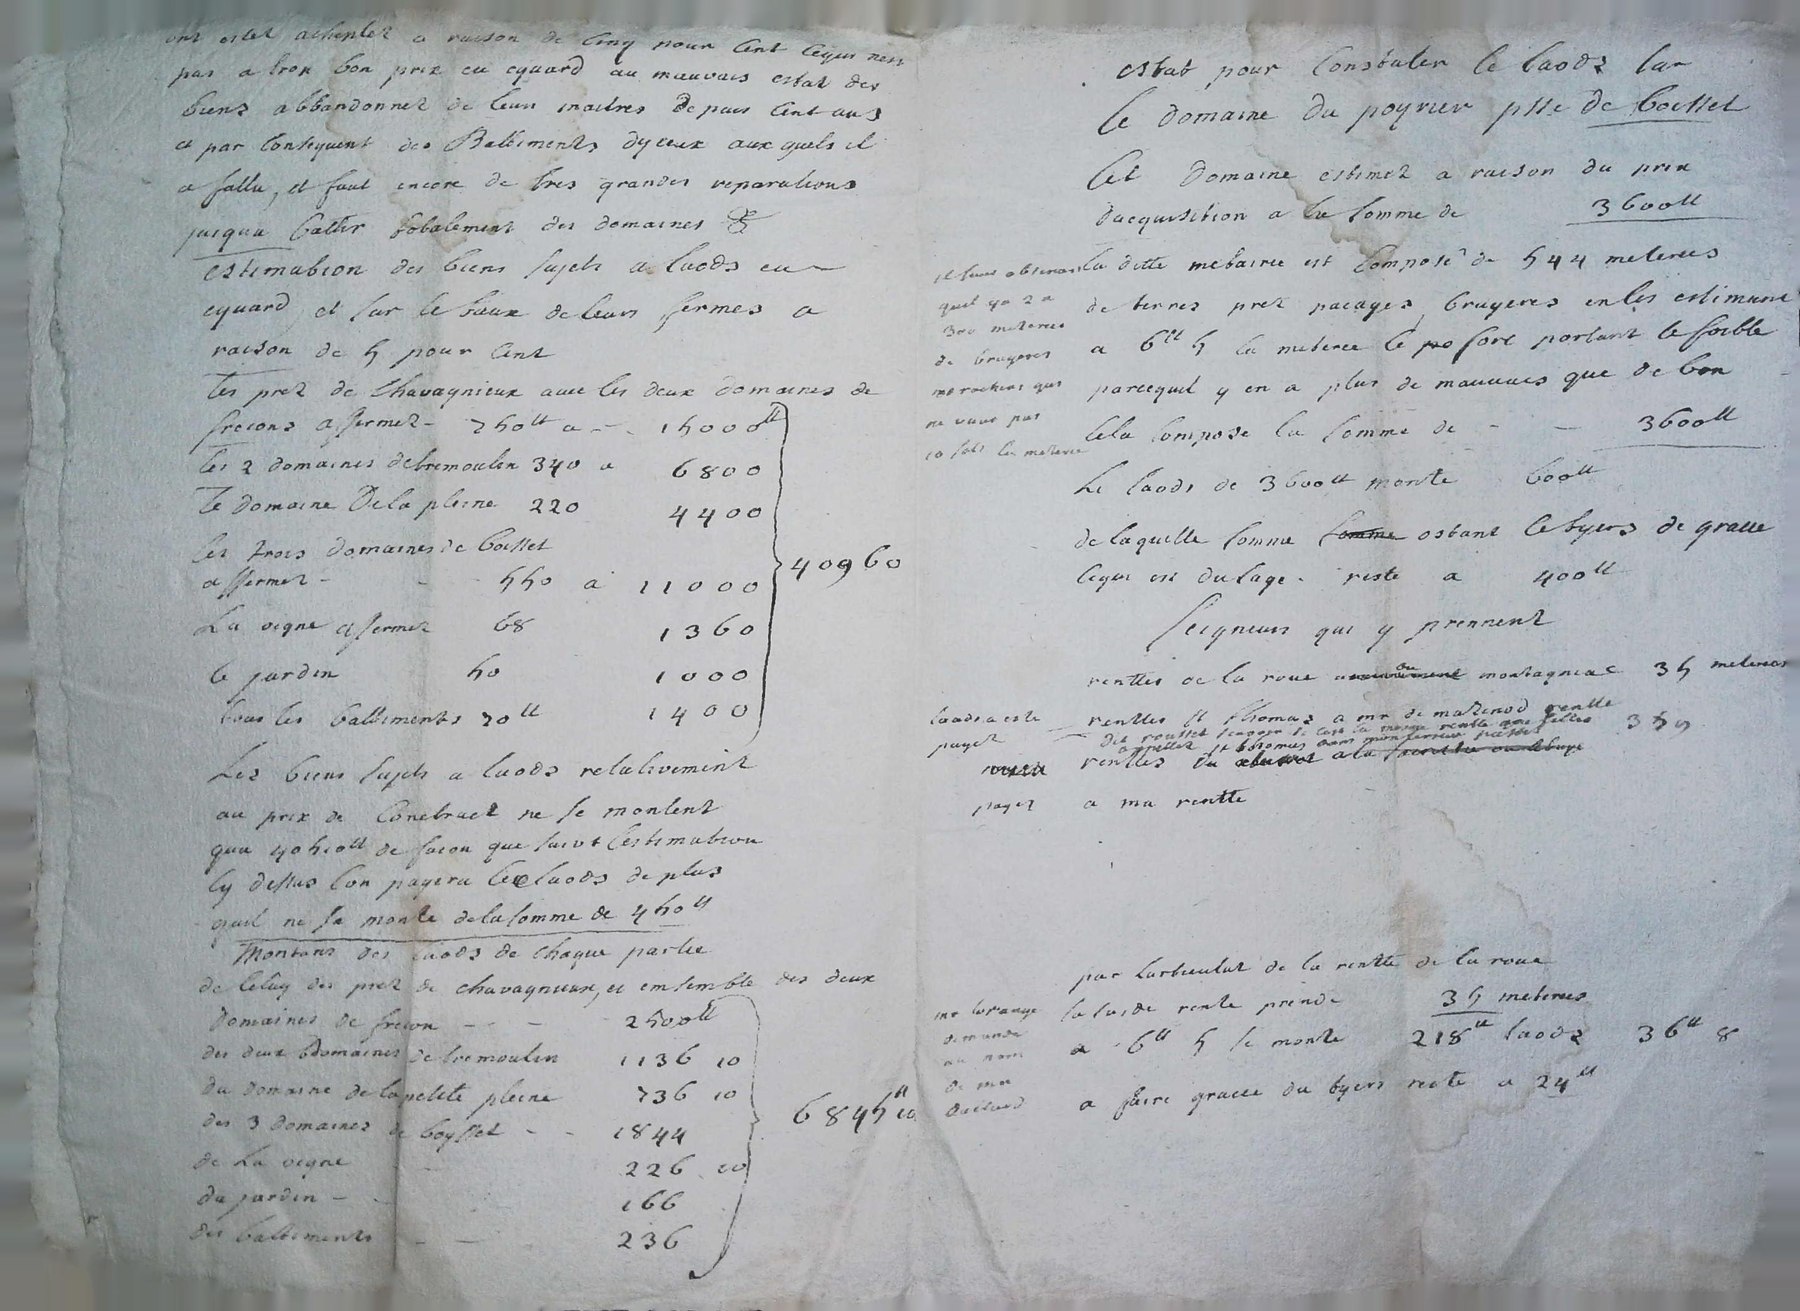 ont estez achentez a raison de Cinq pour Cent Cequi nest
pas a trop bon prix eu eguard au mauvais estat des
biens abbandonnez de leur maitres depuis Cent ans
et par Consequent des Battiments dyceux aux quels il
a fallu, et faut encore de tres grandes reparations
jusqua battir totalement des domaines &
estimation des biens sujets a laods eu
eguard et sur le baux de leurs fermes a
raison de 5 pour Cent
les prez de Chavagnieux avec les deux domaines de
frecons affermez - 750tt a - - 15000tt
les 2 domaines de tremoulen 340 a 6800
Le domaine De la pleine 220 4400
les trois domaines de boisset
affermez - - 550 a 11000
40960
La vigne affermez 68 1360
le jardin 50 1000
tous les battiments 70tt 1400
Les biens sujets a laods relativement
au prix de Contract ne se montent
qua 40510tt de facon que suivt lestimation
Cy dessus lon payera les laods de plus
quil ne se monte de la somme de 450tt
Montant des laods de chaque partie
de Celuy des prez de chavagnieux, et ensemble des deux
domaines de frecon - - - 2500tt
des deux domaines de tremoulen 1136 10
du domaine de la petite pleine 736 10
des 3 domaines de boysset - - 1844
6845tt 10
de La vigne 226 10
du jardin - - 166
des battiments - - 236
estat pour Constater le laods sur
le domaine du poyrier psse de boisset
Cet Domaine estimez a raison du prix
dacquisition a la somme de 3600tt
la ditte metairie est Composé de 544 meterees
de terres prez pacages bruyeres en les estimant
a 6tt 5 la meteree le fort portant le foible
parcequil y en a plus de mauvais que de bon
Cela Compose la somme de - - 3600tt
il faut observer
quil y a 2 a
300 meterees
de bruyeres
ou rochers qui
ne vaut pas
10 sols la meteree
Le laods de 3600tt monte 600tt
de laquelle somme somme ostant le tyers de grace
Cequi est dusage - reste a 400tt
Seigneurs qui y prennent
renttes de la roue ou montagniac 35 meterees
laods a este
payez
renttes st thomas a mr de matenod rentte
359
renttes du a la
payez a ma rentte
par larticulat de la rentte de la roue
la susde rente prende 35 meterees
a 6tt 5 se monte 218tt laods 36tt 8
a faire grace du tyers reste a 24tt
mr lorange
demande
au nom
de mr